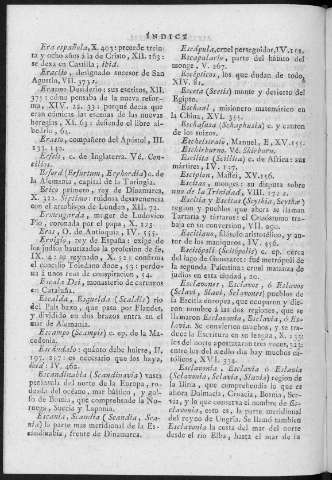 ÍNDICE
Era española, X. 403: precede trein-
ta y ocho años á la de Cristo, XII. 263:
se dexa en Castilla, ibid.
Eraclio, designado sucesor de San
Agustin, VII. 373.
Erasmo Desiderio: sus escritos, XII.
375: cómo pensaba de la nueva refor-
ma, XIV. 22. 33: porque decia que
eran cómicas las escenas de las nuevas
heregías, XI. 63: defiende el libre albe-
drío, 63.
Erasto, compañero del Apóstol, III.
133. 140.
Erfeto, c. de Inglaterra. Vé. Con-
cilios.
Erford (Erfurtum, Erphordia) c. de
la Alemania, capital de la Turingia.
Erico primero, rey de Dinamarca,
X. 322. Séptimo: ruidosa desavenencia
con el arzobispo de Londen, XII. 72.
Ermengarda, muger de Ludovico
Pio, coronada por el papa, X. 123
Eros, O. de Antioquia, IV. 555.
Ervigio, rey de España: exige de
los judíos bautizados la profesion de fe,
IX. 42: se reynado, X. 52: confirma
el concilio Toledano doce, 53: perdo-
na á unos reos de conspiracion, 54.
Escala Dei, monasterio de cartuxos
en Cataluña.
Escalda, Esquelda (Scaldis) rio
del Pais baxo, que pasa por Flandes,
y dividido en dos brazos entra en el
mar de Alemania.
Escampo (Scampis) c. ep. de la Ma-
cedonia.
Escándalo: quánto debe huirse, II.
197. 257: es necesario que los haya,
ibid: IV. 462.
Escandinabia (Scandinavia) vasta
península del norte de la Europa, ro-
deada del océano, mar báltico, y gol-
fo de Bosnia, que comprehende la No-
ruega, Suecia y Laponia.
Escania, Scandia (Scandia, Sca-
nia) la parte mas meridional de la Es-
candinabia, frente de Dinamarca.
Escápula, cruel perseguidor, IV. 151.
Escapulario, parte del hábito del
monge, V. 267.
Escépticos, los que dudan de todo,
XIV. 81.
Esceta (Scetis) monte y desierto del
Egipto.
Eschaal, misionero matemático en
la China, XVI. 355.
Eschafusa (Schaphusia) c. y canton
de los suizos.
Eschelstrate, Manuel, E. XV. 155.
Eschirburna. Vé. Skirburn.
Escilita (Scillita) c. de Africa: sus
mártires, IV. 147.
Escipion, Maffei, XV. 156.
Escitas, monges: su disputa sobre
uno de la Trinidad, VIII. 172 s.
Escitia y Escitas (Scythia, Scythæ)
region y pueblos que ahora se llaman
Tartaria y tártaros: el Crisóstomo tra-
baja en su conversion, VII. 290.
Escitiano, filósofo aristotélico, y au-
tor de los maniqueos, IV. 456.
Escitópoli (Scitópolis) c. ep. cerca
del lago de Genesaret: fué metrópoli de
la segunda Palestina: cruel matanza de
judíos en esta ciudad, 20.
Esclavones, Esclavos, ó Eslavos
(Sclavi, Slavi, Sclavones) pueblos de
la Escitia europea, que ocuparon y die-
ron nombre á las dos regiones, que se
llamaron Esclavonia, Esclavia, ó Es-
lavia. Se convierten muchos, y se tra-
duce la Escritura en su lengua, X. 158:
los del norte apostataron tres veces, 323:
antes los del medio dia hay muchos ca-
tólicos, XVI. 334.
Esclavonia, Esclavia ó Eslavia
(Sclavonia, Sclavia, Slavia) region de
la Iliria, que comprehendia lo que es
ahora Dalmacia, Croacia, Bosnia, Ser-
via, y lo que conserva el nombre de Es-
clavonia, esto es, la parte meridional
del reyno de Ungría. Se llamó tambien
Esclavonia la costa del mar del norte
desde el rio Elba, hasta el mar de la